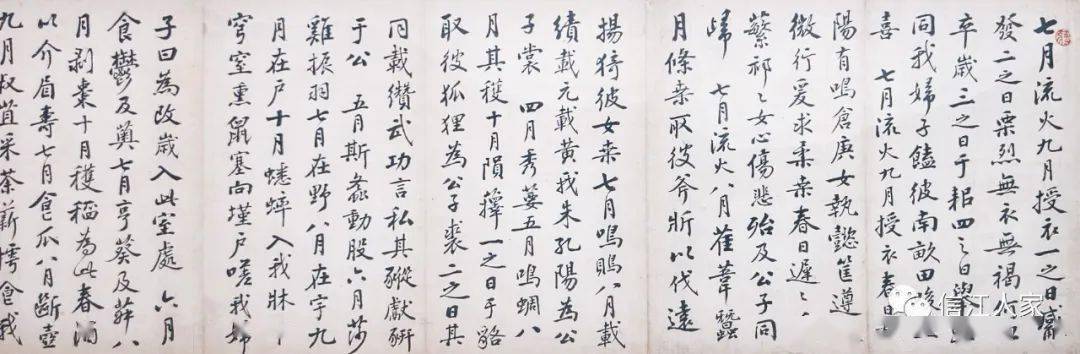 七月流火九月授衣一之日觱
發二之日栗烈無衣無褐何以
卒歲三之日于耜四之日舉
同我婦子饁彼南畝田畯
喜 七月流火九月授衣春日
陽有鳴倉庚女執懿筐遵
微行爰求柔桑春日遲〻
蘩祁〻女心傷悲殆及公子同
歸 七月流火八月萑葦蠶
月條桑取彼斧斨以代遠
揚猗彼女桑七月鳴鵙八月載
績載元載黃我朱孔陽為公
子裳 四月秀葽五月鳴蜩八
月其穫十月隕蘀一之日于貉
取彼狐狸為公子裘二之日其
同載纘武功言私其豵獻豜
于公 五月斯螽動股六月莎
雞振羽七月在野八月在宇九
月在戶十月蟋蟀入我牀
穹窒熏鼠塞向墐戶嗟我婦
子曰為改歲入此室處 六月
食鬱及薁七月亨葵及菽八
月剝棗十月穫稻為此春酒
以介眉壽七月食瓜八月斷壺
九月叔苴采荼薪樗食我
信江人家